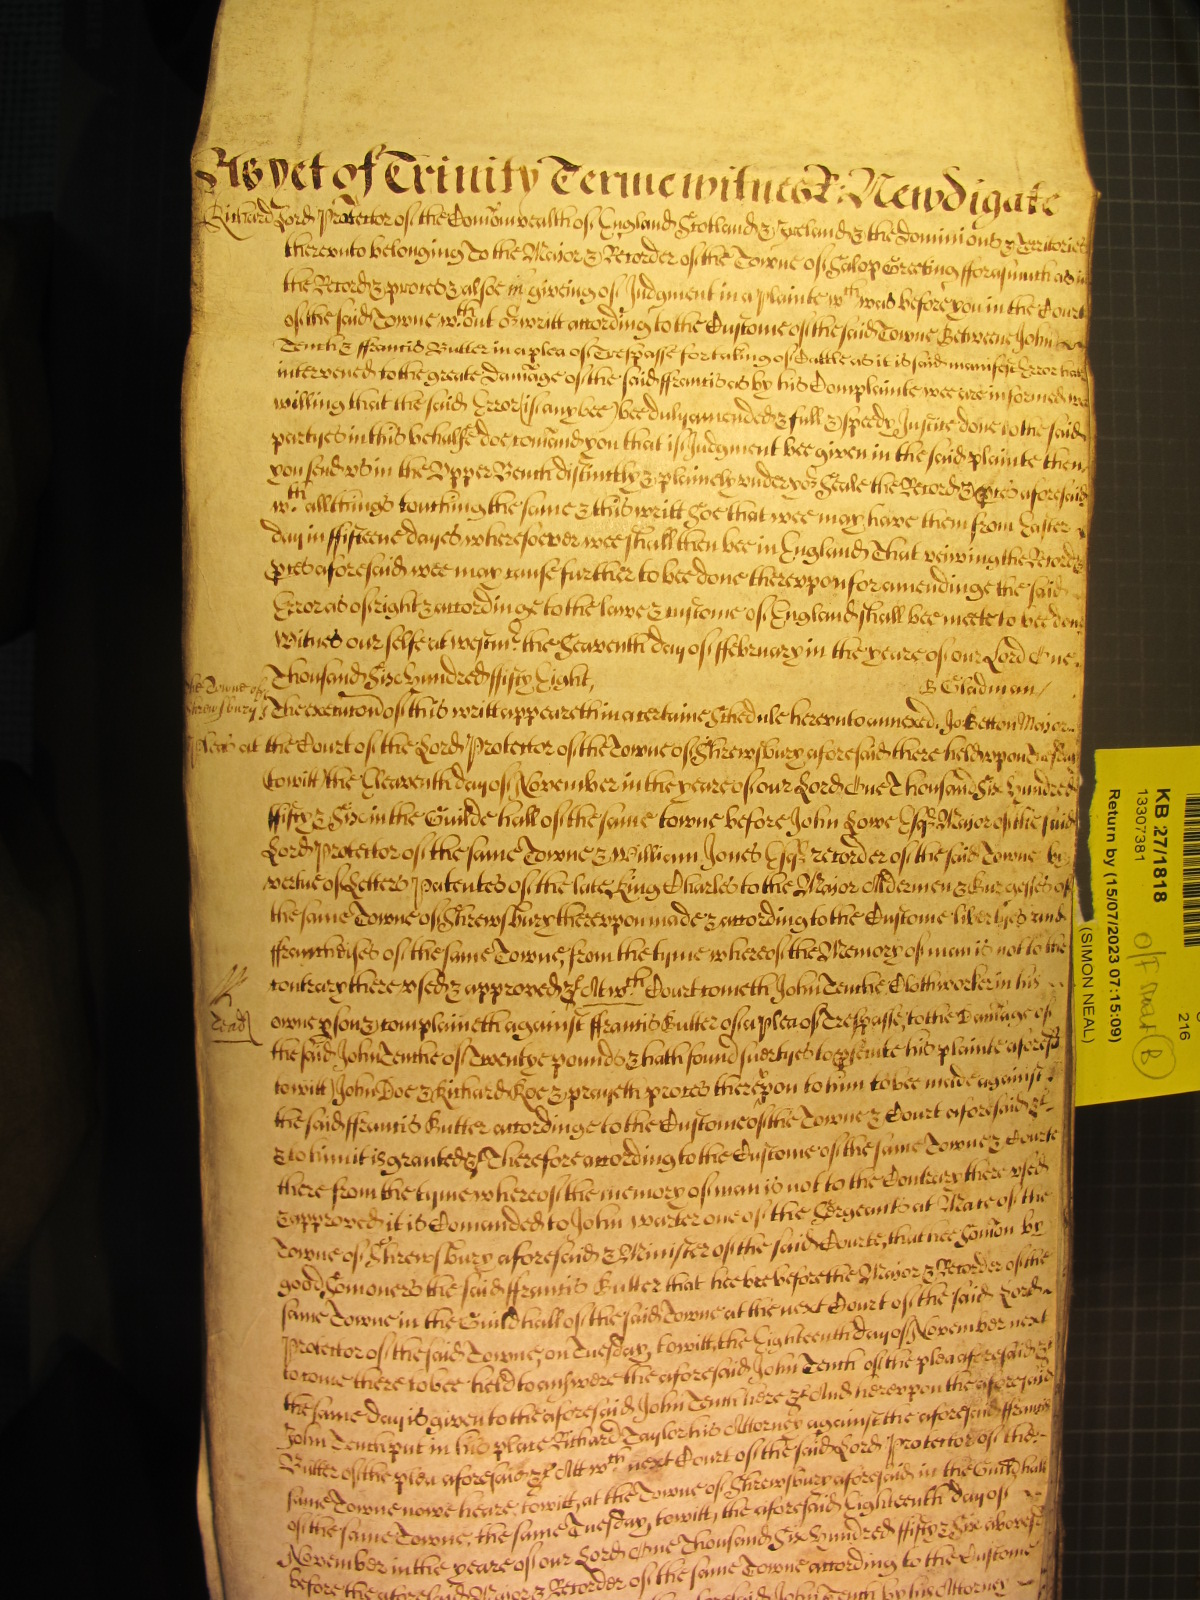 As yet of Trinity Terme witnes R: Newdigate
Richard Lord Protector of the Comonwealth of England Scotland & Ireland & the Dominions & Territories
thereunto belonging To the Major & Recorder of the Towne of Salop Greeting fforasmuch as in
the Record & proces & alsoe in giveing of Judgment in a plainte wch was before you in the Court
of the said Towne wthout or writt according to the Custome of the said Towne Betweene John
Tench & ffrancis Butter in a plea of Trespasse for taking of Cattle as it is said manifest Error hath
intervened to the greate Damage of the said ffrancis as by his Complainte wee are informed wee
willing that the said Error (if any bee) bee duly amended & full & speedy Justice done to the said
partyes in this behalfe doe comand you that if Judgment bee given in the said plainte then
you send us in the Upper Bench distinctly & plainely under yor Seale the Record & pces aforesaid
wth all things touching the same & this writt Soe that wee may have them from Easter
day in ffifteene dayes wheresoever wee shall then bee in England That veiwing the Record &
pces aforesaid wee may cause further to bee done thereupon for amendinge the said
Error as of right & accordinge to the lawe & custome of England shall bee meete to bee done
Witnes our selfe at Westmr the Seaventh day of ffebruary in the yeare of our Lord One
Thousand Six hundred ffifty Eight,
B Gladman
the Towne of
Shrewsbury
The execucon of this writt appeareth in a certaine Schedule hereunto annexed. Jo: Betton Major
Pleas at the Court of the Lord Protector of the Towne of Shrewsbury aforesaid there held upon Tuesday
towitt the Eleaventh day of November in the yeare of our Lord One Thousand Six hundred
ffifty & Six in the Guilde hall of the same towne before John Lowe Esqr Major of the said
Lord Protector of the same Towne & William Jones Esqr recorder of the said Towne by
vertue of Letters Patentes of the late King Charles to the Major Aldermen & Burgesses of
the same Towne of Shrewsbury thereupon made & according to the Custome libertyes and
ffranchises of the same Towne, from the tyme whereof the Memory of man is not to the
contrary there used & approved &c At wch Court cometh John Tenche Clothworker in his
owne pson & complaineth against ffrancis Butter of a plea of Trespasse, to the Damage of
the said John Tenche of Twentye pounds & hath found suertyes to psecute his plainte aforesd
towitt John Doe & Richard Roe & prayeth proces thereupon to him to bee made against
the said ffrancis Butter accordinge to the Custome of the Towne & Court aforesaid &c
& to him it is granted &c Therefore according to the Custome of the same Towne & Courte
there from the tyme whereof the memory of man is not to the Contrary there used
& approved it is Comanded to John Warter one of the Sergeants at Mace of the
Towne of Shrewsbury aforesaid & Minister of the said Courte, that hee Somon by
good Somoners the said ffrancis Butter that hee bee before the Major & Recorder of the
same Towne in the Guildhall of the said Towne at the next Court of the said Lord
Protector of the said Towne, on Tuesday towitt, the Eighteenth day of November next
to come there to bee held to answere the aforesaid John Tench of the plea aforesaid &c
the same day is given to the aforesaid John Tench here &c And hereupon the aforesaid
John Tench put in his place Richard Taylor his Attorney against the aforesaid ffrancis
Butter of the plea aforesaid &c Att wch next Court of the said Lord Protector of the
same Towne nowe heare, towitt, at the Towne of Shrewsbury aforesaid in the Guild hall
of the same Towne, the same Tuesday, towitt, the aforesaid Eighteenth day of
November in the yeare of our Lord One Thousand Six hundred ffifty & Six aboves
before the aforesaid Major & Recorder of the same Towne according to the Custome
aforesaid John Tench by his Attorney
KB 27/1818
13307381
Return by (15/07/2023 07:15:09)
(SIMON NEAL)
216